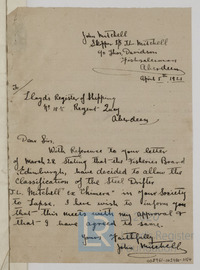 John Mitchell
Skipper
Mitchell
Davidson
Fishsalesman
Aberdeen
April 5th 1922
To
Lloyds Register of Shipping
Regent Quay
Aberdeen
Dear Sirs,
With Reference to your letter
of March 28 Stating that the Fisheries Board
Edinburgh, have decided to allow the
Classification of the Steel Drifter
Mitchell ex Chimera in your Society
to Lapse. I have wish to inform you
that this meets with my approval &
that I have agreed to same.
Yours Faithfully
John Mitchell